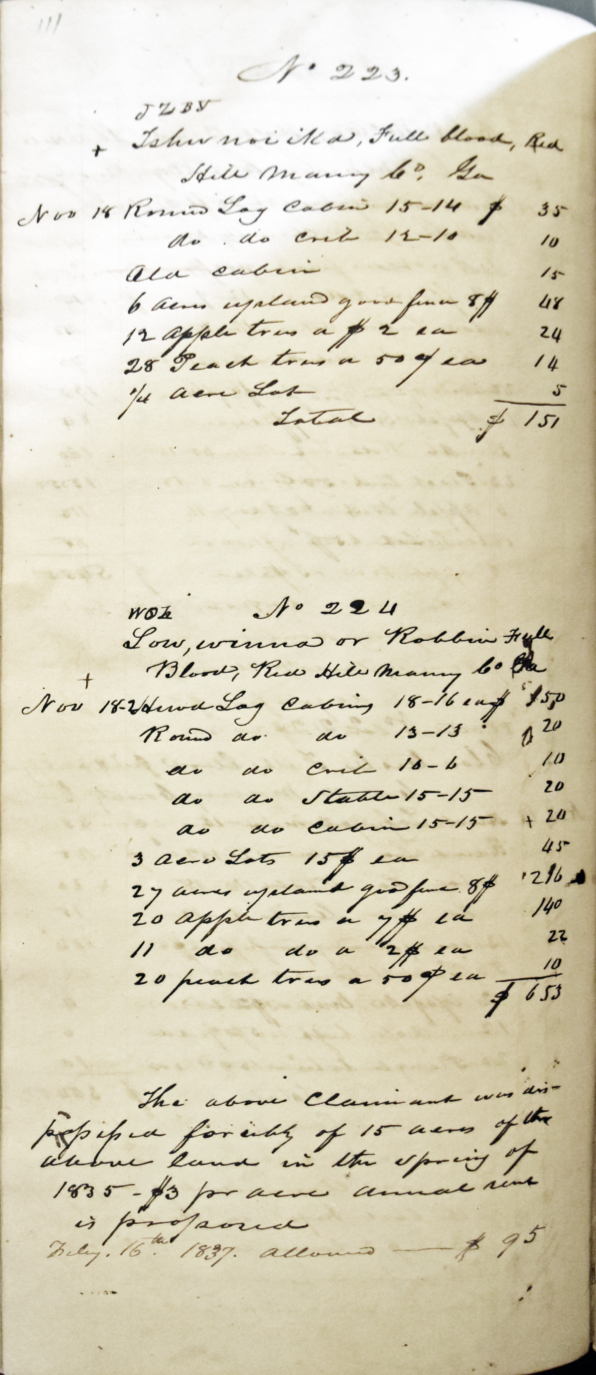 111
No 223.
+ Full blood, Red
Hill Murry Co. Ga
Nov 18 Round Log Cabin 15-14 $ 35
do do Crib 12-10 10
Old Cabin 15
6 Acres upland good fence 8$ 48
12 Apple trees a $2 ea 24
28 Peach trees a 50¢ ea 14
1/4 Acre Lot 5
Total $ 151
No 224
Low,winna or Robbin Full
+ Blood, Red Hill Murry Co Ga
Nov 18-2 Hewd Log Cabins 18-16 ea $ 150
Round do do 13-13 20
do do Crib 10-6 10
do do Stable 15-15 20
do do Cabin 15-15 + 20
3 Acre Lots 15$ ea 45
27 acres upland good fence 8$ 216
20 Apple trees a 7$ ea 140
11 do do a 2$ ea 22
20 peach trees a 50¢ ea 10
$ 653
The above Claimant was dis-
possessed forcibly of 15 acres of the
above land in the Spring of
1835 - $3 pr acre annual rent
is proposed
Feby. 16th. 1837. allowed — $ 95